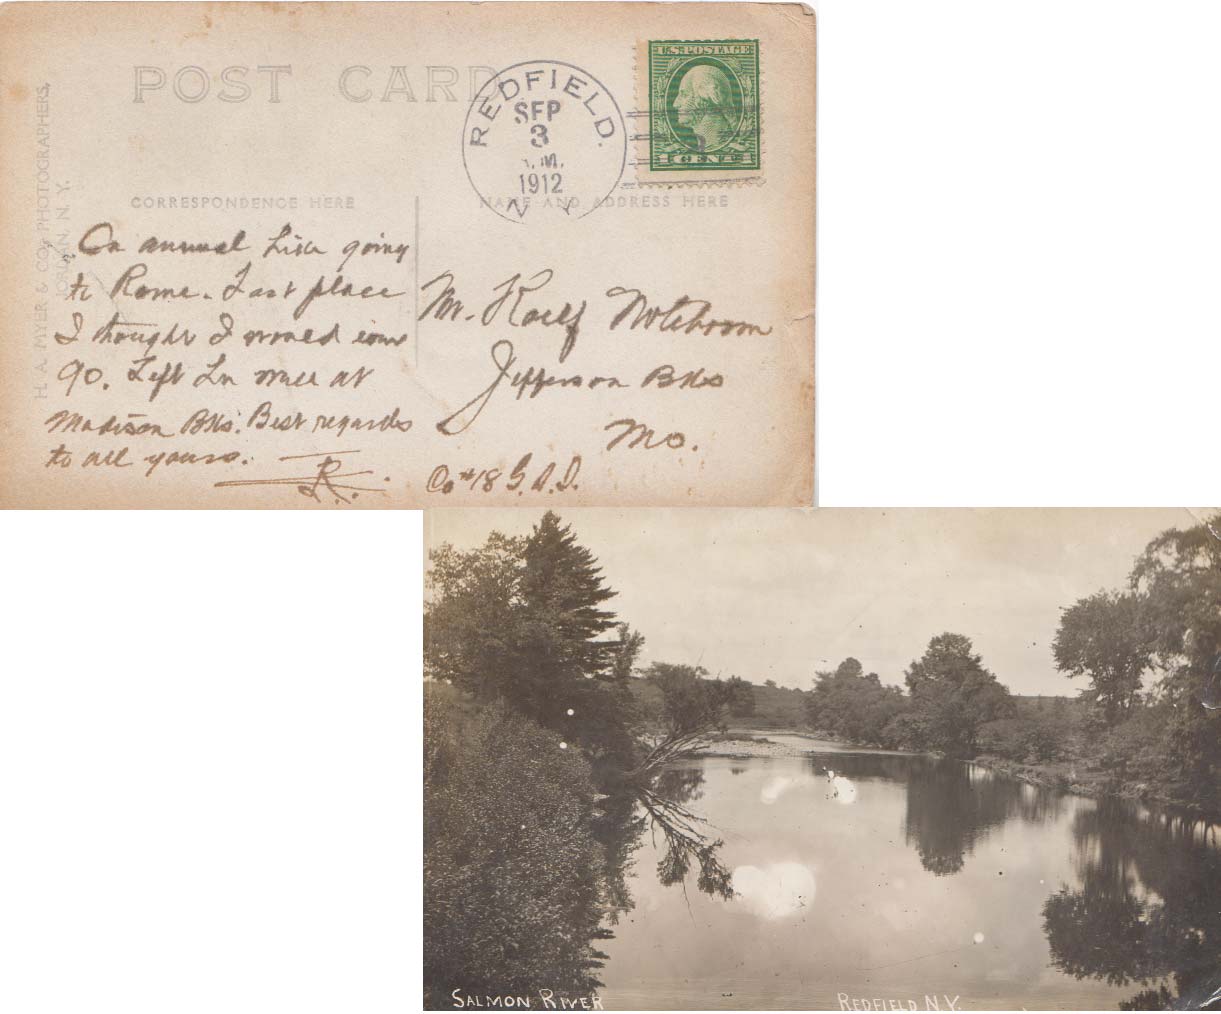 POST CARD
REDFIELD.
SEP
3
.M.
1912
N Y
U.S. POSTAGE
1 CENT 1
CORRESPONDENCE HERE
NAME AND ADDRESS HERE
H. A. MYER & CO., PHOTOGRAPHERS,
JORDAN, N. Y.
On annual hike going
to Rome. Last place
I thought I would come
90. Left
at
Madison Bks. Best regards
to all yours.
R.
Mr. Roelf Noteboom
Jefferson Bks
Mo.
Co #18 G.S.I.
SALMON RIVER
REDFIELD N.Y.